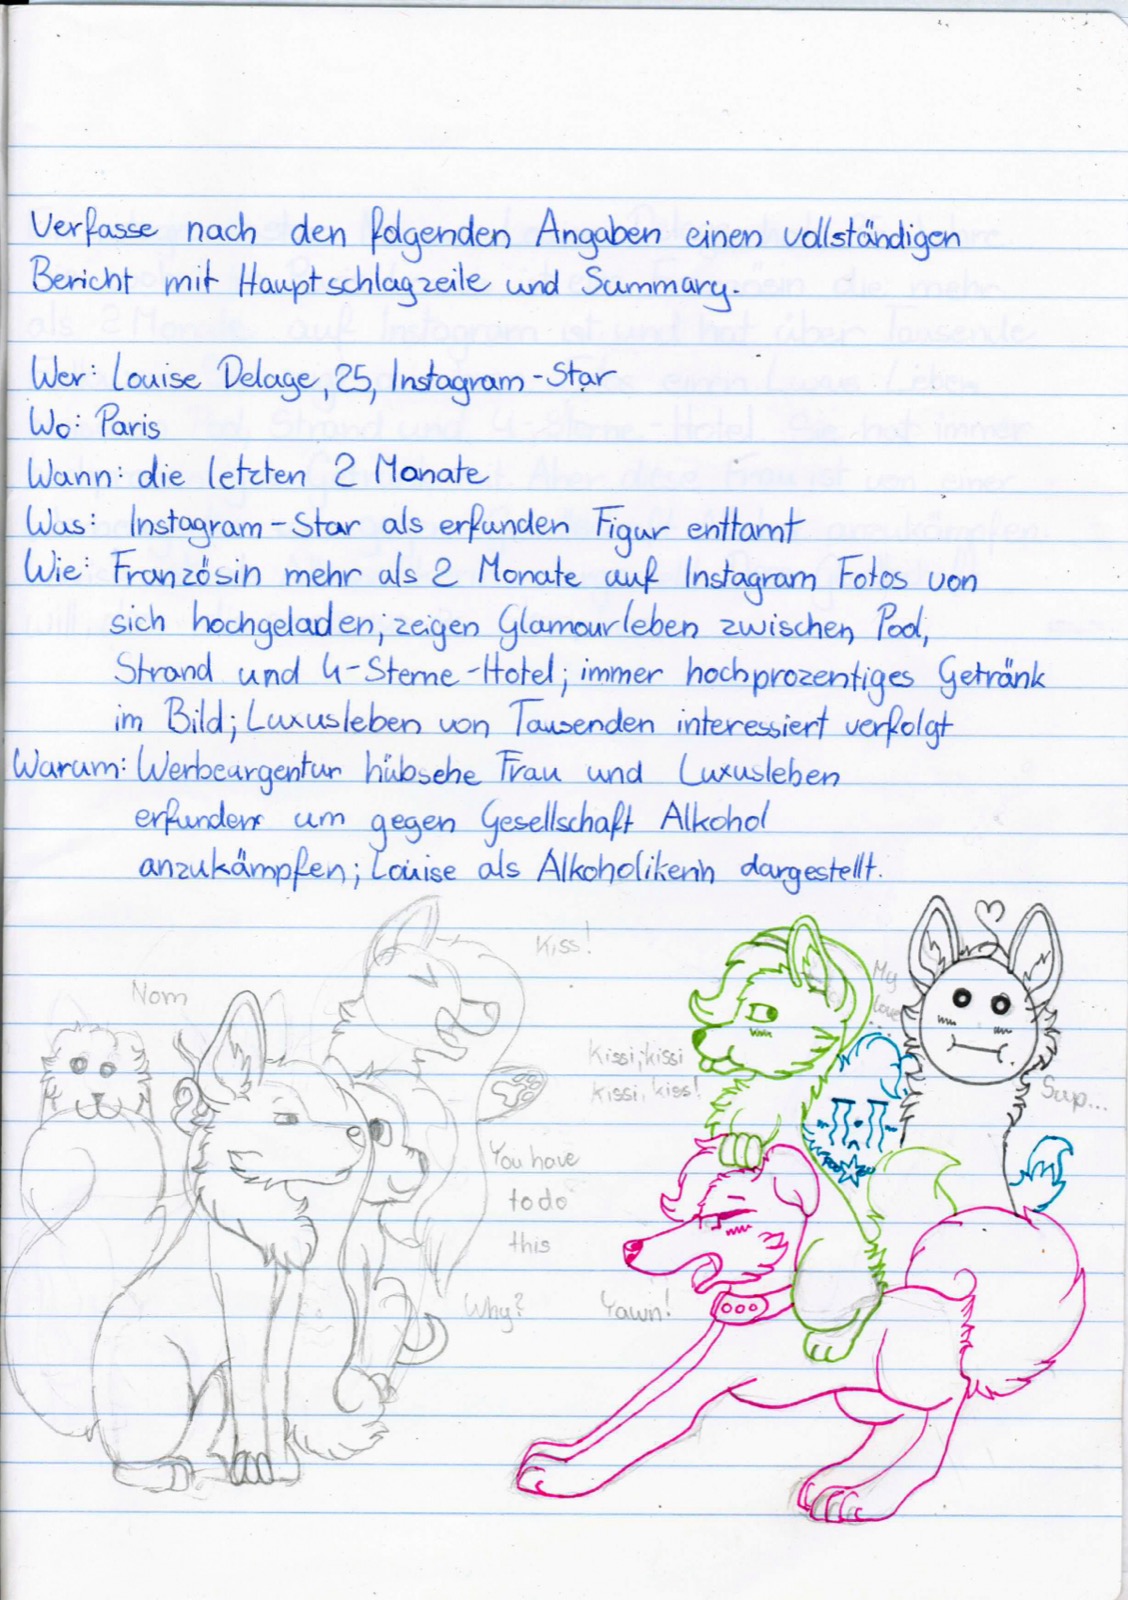 Verfasse nach den folgenden Angaben einen vollständigen
Bericht mit Hauptschlagzeile und Summary.
Wer: Louise Delage, 25, Instagram-Star
Wo: Paris
Wann: die letzten 2 Monate
Was: Instagram-Star als erfunden Figur enttamt
Wie: Französin mehr als 2 Monate auf Instagram Fotos von
sich hochgeladen; zeigen Glamourleben zwischen Pool,
Strand und 4-Sterne-Hotel; immer hochprozentiges Getränk
im Bild; Luxusleben von Tausenden interessiert verfolgt
Warum: Werbeargentur hübsche Frau und Luxusleben
erfunden um gegen Gesellschaft Alkohol
anzukämpfen; Louise als Alkoholikerin dargestellt.
Kiss!
Nom
My
love
...
Kissi, kissi
kissi, kiss!
Sup...
You have
to do
this
Why?
Yawn!